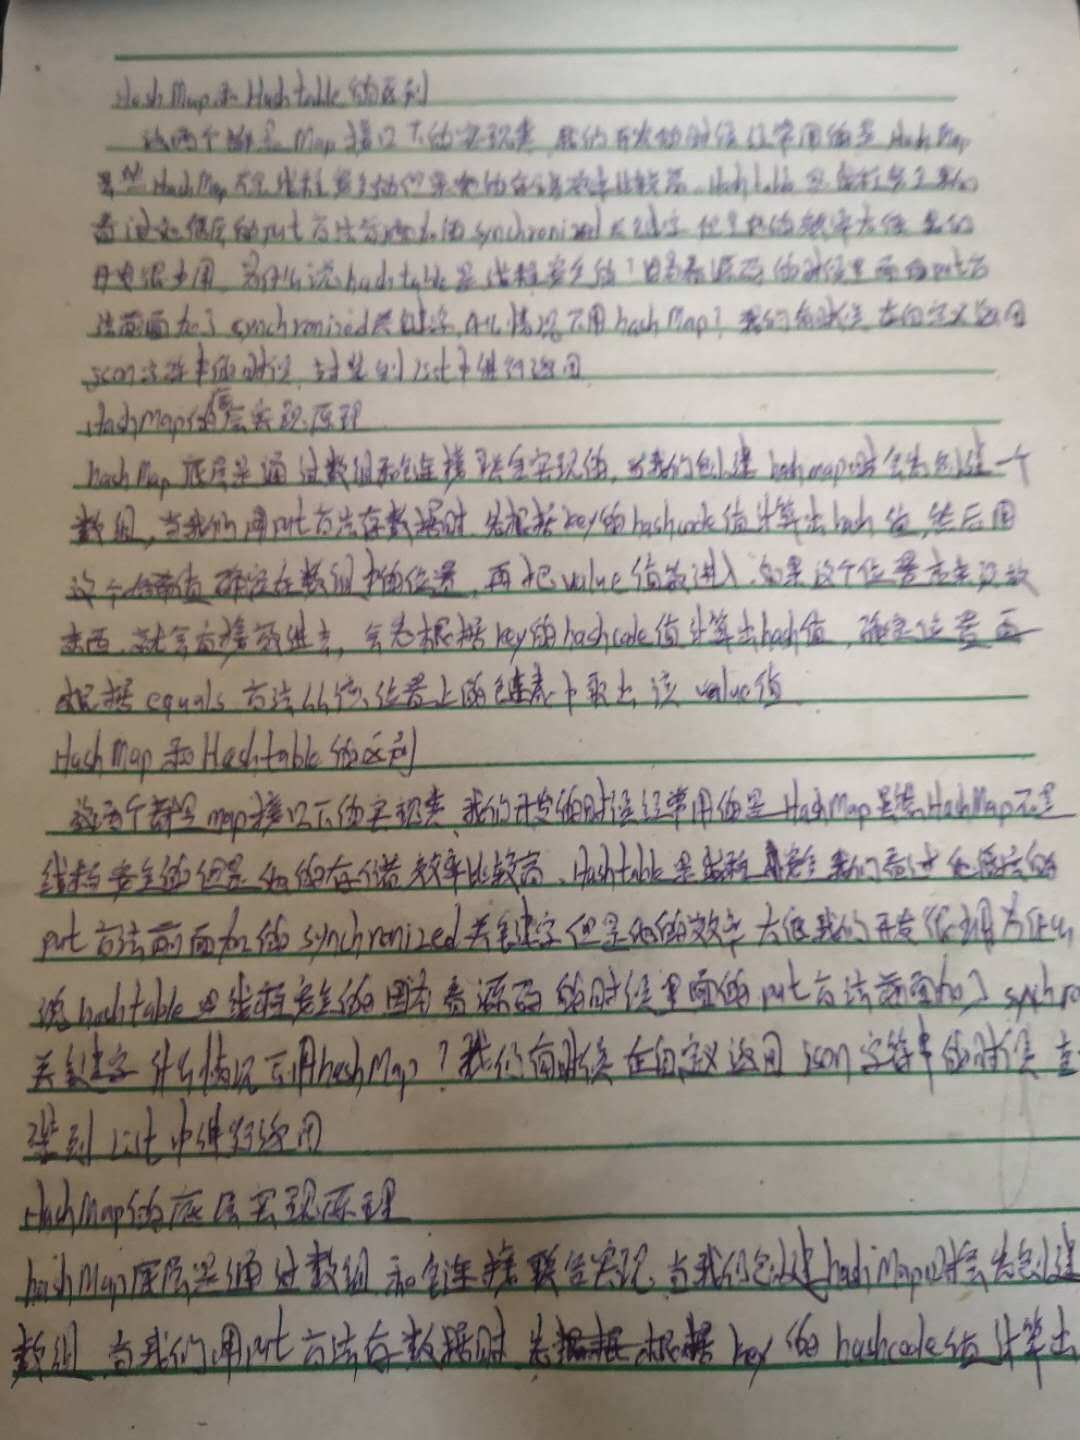 HashMap和Hashtable的区别
这两个都是Map接口下的实现类,我们开发的时候经常用的是HashMap
是HashMap不是线程安全的但是他的存储效率比较高,Hashtable是线程安全我们
看过他底层的put方法前面加的synchronized关键字但是他的效率太低我们
开发很少用,为什么说hashtable是线程安全的?因为看源码的时候里面的put方
法前面加了synchronized关键字,什么情况下用hashMap?我们有时候在自定义返回
json字符串的时候,封装到list中进行返回
HashMap的底层实现原理
hashMap底层是通过数组和链接联合实现的,当我们创建hashmap时会先创建一个
数组,当我们用put方法存数据时,先根据key的hashcode值计算出hash值,然后用
这个值确定在数组中的位置,再把value值放进入,如果这个位置没放
东西,就会直接放进去,会先根据key的hashcode值计算出hash值,确定位置再
根据equals方法从该位置上的链表中取出该value值
HashMap和Hashtable的区别
这两个都是map接口下的实现类,我们开发的时候经常用的是HashMap是HashMap不是
线程安全的但是他的存储效率比较高,Hashtable是线程安全我们看过他底层的
put方法前面加的synchronized关键字但是他的效率太低我们开发很少用为什么
说hashtable是线程安全的因为看源码的时候里面的put方法前面加了synchro
关键字 什么情况下用hashMap?我们有时候在自定义返回json字符串的时候
装到list中进行返回
HashMap的底层实现原理
hashMap底层是通过数组和链接联合实现,当我们创建hashMap时会先创建
数组,当我们用put方法存数据时,先根据key的hashcode值计算出